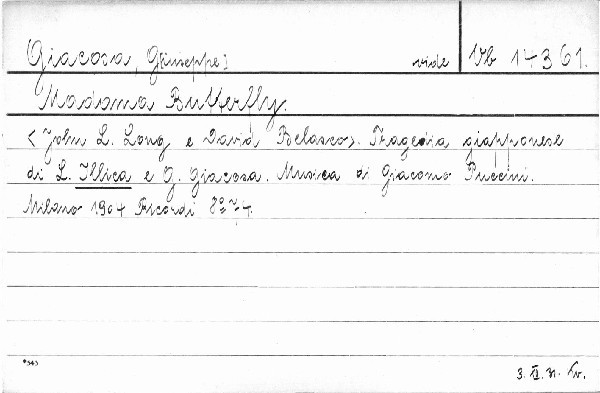 Giacosa, G[iuseppe] vide Vb 14361.
Madama Butterfly.
<John L. Long e David Belasco>. Tragedia giapponese
di L. Illica e G. Giacosa. Musica di Giacomo Puccini.
Milano 1904 Ricordi
*343